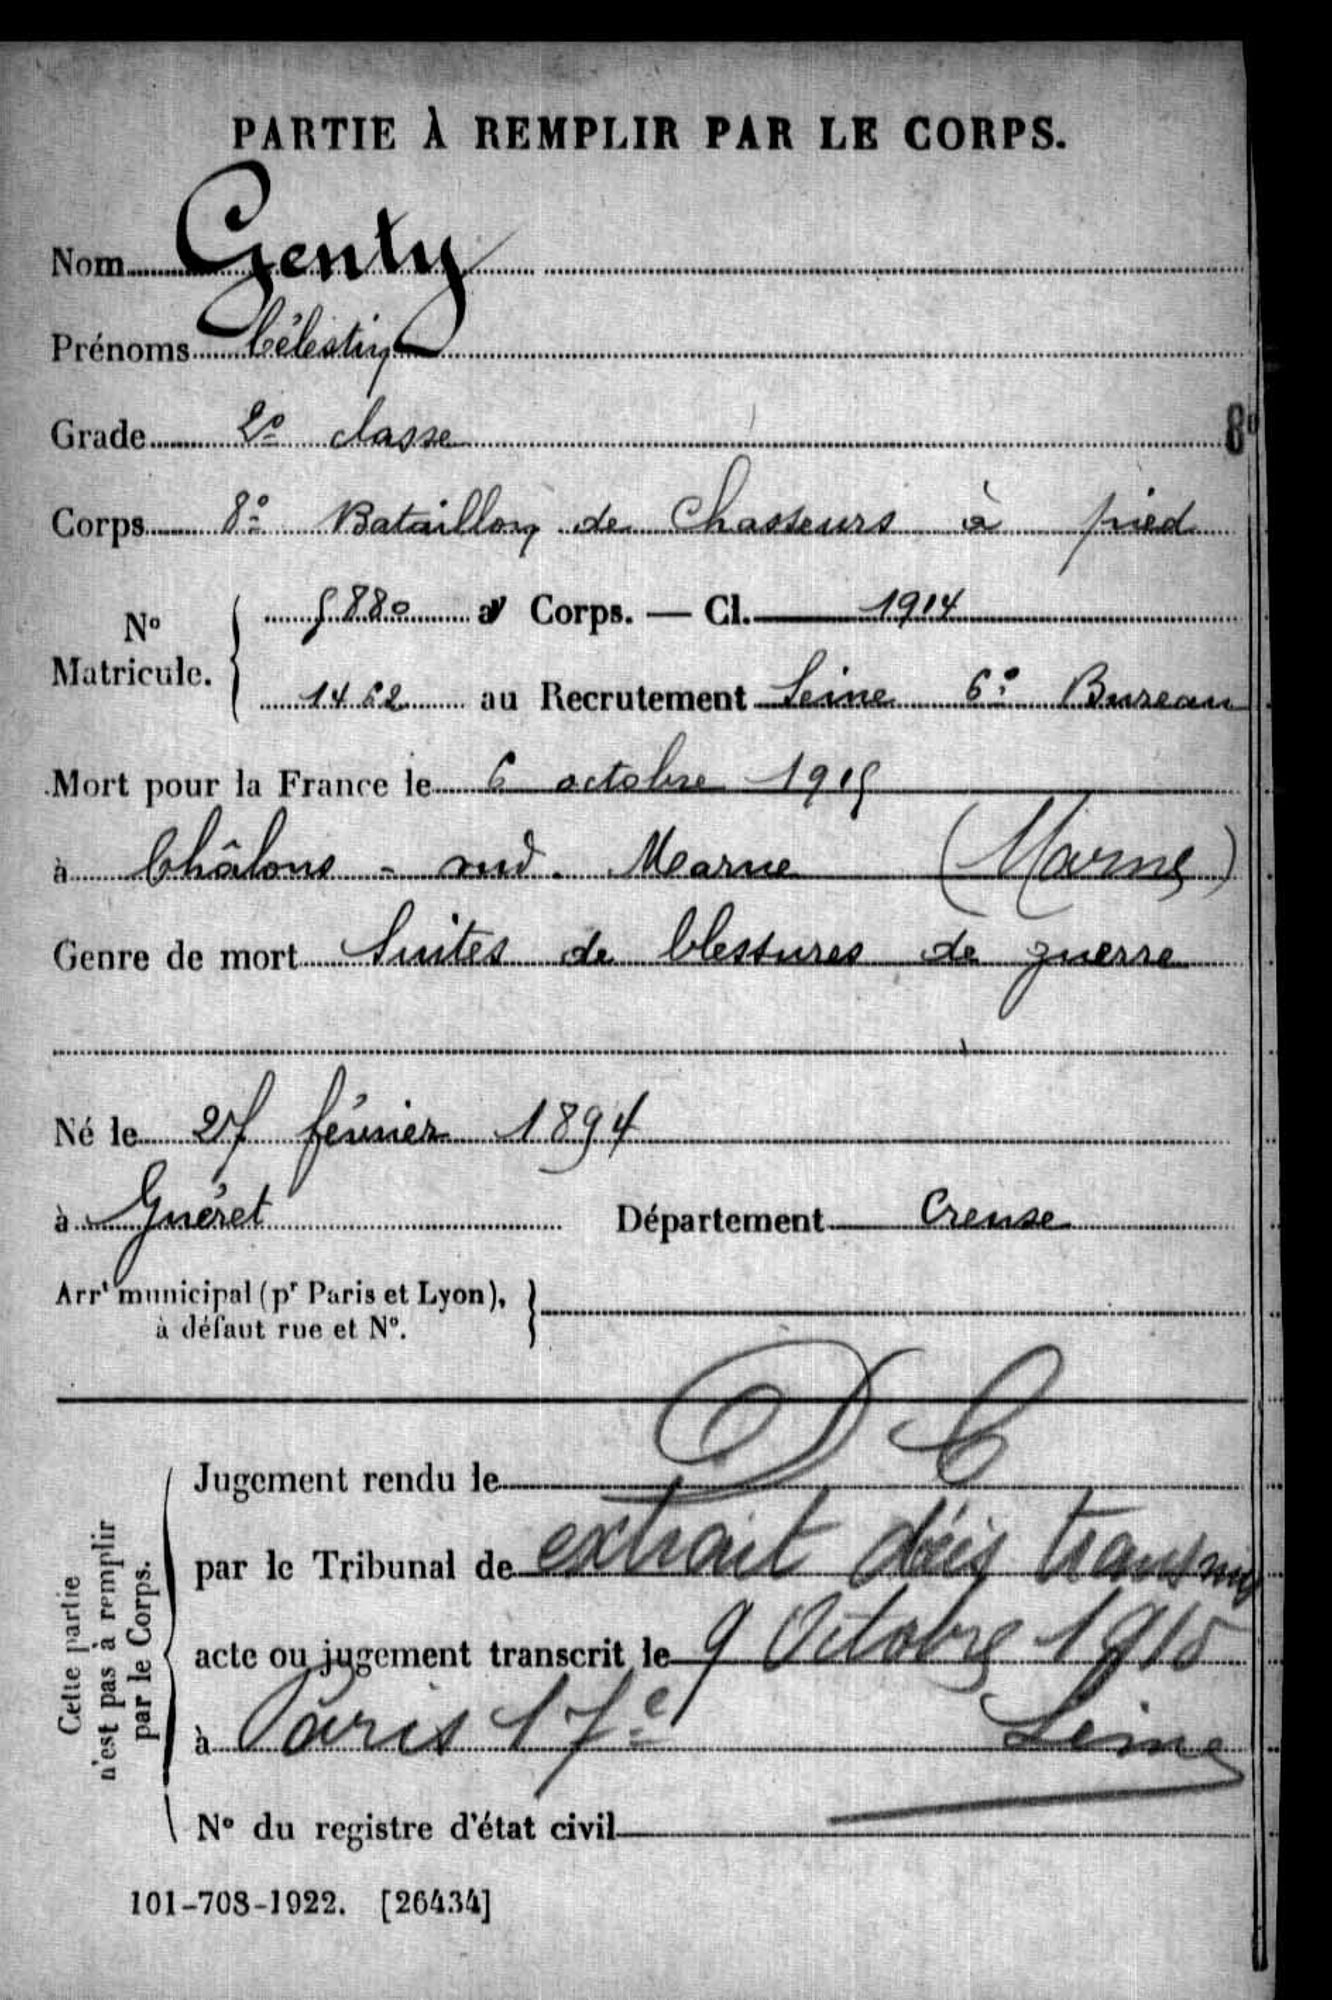 PARTIE À REMPLIR PAR LE CORPS.
Nom Genty
Prénoms Célestin
Grade 2e classe
8e
Corps 8e Bataillon de Chasseurs à pied
No Matricule. { 5880 au Corps. — Cl. 1914
1462 au Recrutement Seine 6e Bureau
Mort pour la France le 6 octobre 1915
à Châlons - sud. Marne (Marne)
Genre de mort Suites de blessures de guerre
Né le 27 février 1894
à Guéret Département Creuse
Arrt municipal (pr Paris et Lyon), à défaut rue et No. }
D C
Cette partie n'est pas à remplir par le Corps.
Jugement rendu le
par le Tribunal de extrait décès transmis
acte ou jugement transcrit le 9 Octobre 1915
à Paris 17e Seine
No du registre d'état civil
101-708-1922. [26434]